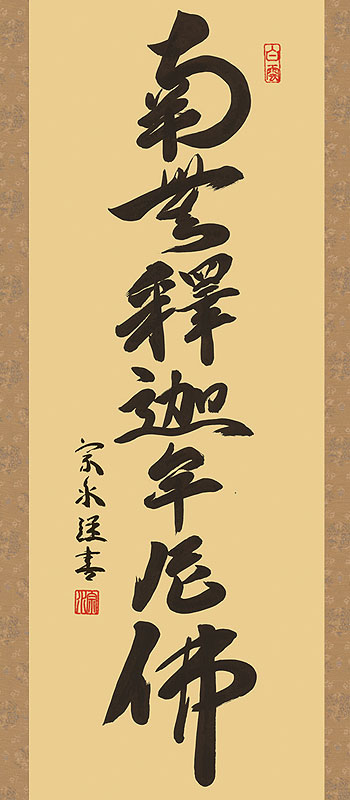 白雲
南無釋迦牟尼佛
宗永謹書